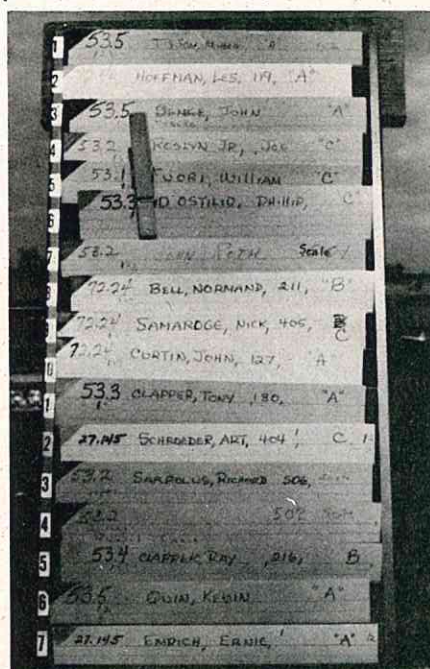 1 53.5 "A"
2 HOFFMAN, LES, 119, "A"
3 53.5 JOHN "A"
4 53.2 ROSLYN JR, JOE "C"
5 53.1 FUORI, WILLIAM "C"
6 53.3 D OSTILIO, C
7 53.2 JOHN ROTH Scale
72.24 BELL, NORMAND, 211, "B"
72.24 SAMAROGE, NICK, 405, C
0 72.24 CURTIN, JOHN, 127, "A
1 53.3 CLAPPER, TONY, 180, "A"
2 27.145 SCHROEDER, ART, 404 C
3 53.2 SARPOLUS, RICHARD 506,
4 53.2 507
5 53.4 CLAPPER, RAY, 216, B
6 53.5 QUIN, KEVIN "A"
7 27.145 EMRICH, ERNIE, "A"